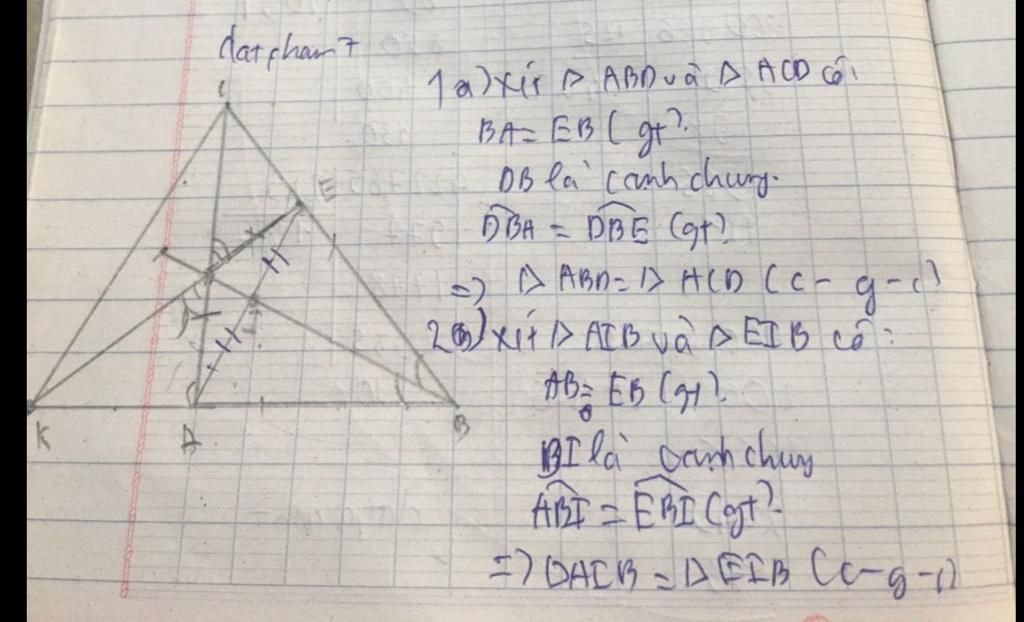 datpham7
1a) xét Δ ABD và Δ ACD có:
BA = EB (gt).
DB là cạnh chung.
DBA = DBE (gt).
=> Δ ABD = Δ ACD (c-g-c)
2a) xét Δ AIB và Δ EIB có:
AB = EB (gt).
BI là cạnh chung
ABI = EBI (gt).
=> ΔAIB = Δ EIB (c-g-c)
E
K
A
B